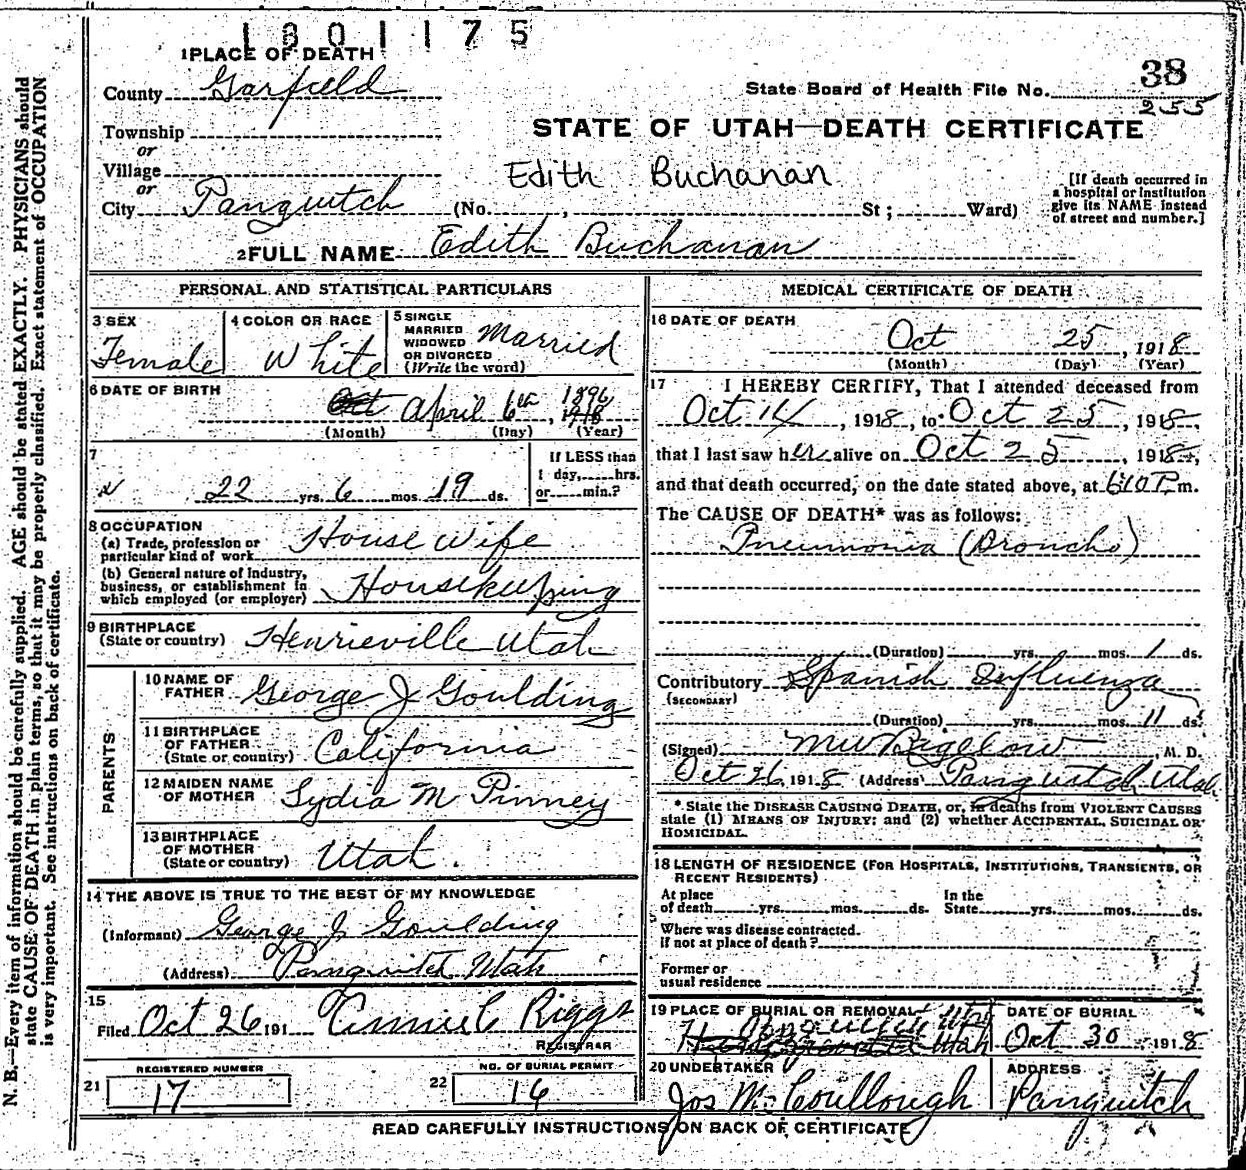 1301175
1 PLACE OF DEATH
38
County Garfield
State Board of Health File No.
255
Township
or
STATE OF UTAH—DEATH CERTIFICATE
Village
or
Edith Buchanan
City Panguitch (No. , St ; Ward)
[If death occurred in
a hospital or institution
give its NAME instead
of street and number.]
2 FULL NAME Edith Buchanan
PERSONAL AND STATISTICAL PARTICULARS
3 SEX
Female
4 COLOR OR RACE
White
5 SINGLE
MARRIED
WIDOWED
OR DIVORCED
(Write the word)
Married
6 DATE OF BIRTH
Oct April 6th, 1896
1918
(Month) (Day) (Year)
7
22 yrs. 6 mos. 19 ds.
If LESS than
1 day, hrs.
or min.?
8 OCCUPATION
(a) Trade, profession or
particular kind of work House Wife
(b) General nature of industry,
business, or establishment in
which employed (or employer) Housekeeping
9 BIRTHPLACE
(State or country) Henrieville Utah
PARENTS
10 NAME OF
FATHER George J Goulding
11 BIRTHPLACE
OF FATHER
(State or country) California
12 MAIDEN NAME
OF MOTHER Lydia M Pinney
13 BIRTHPLACE
OF MOTHER
(State or country) Utah.
14 THE ABOVE IS TRUE TO THE BEST OF MY KNOWLEDGE
(Informant) George J. Goulding
(Address) Panguitch Utah
15
Filed Oct 26 191 Riggs
REGISTRAR
21
REGISTERED NUMBER
17
22
NO. OF BURIAL PERMIT
16
MEDICAL CERTIFICATE OF DEATH
16 DATE OF DEATH
Oct 25, 1918
(Month) (Day) (Year)
17 I HEREBY CERTIFY, That I attended deceased from
Oct 14, 1918, to Oct 25, 1918,
that I last saw her alive on Oct 25, 1918,
and that death occurred, on the date stated above, at 6:10 P. m.
The CAUSE OF DEATH* was as follows:
Pneumonia (Broncho)
(Duration) yrs. mos. 1 ds.
Contributory Spanish Influenza
(SECONDARY)
(Duration) yrs. mos. 11 ds.
(Signed) MW Bigelow M. D.
Oct 26, 1918 (Address) Panguitch Utah
* State the DISEASE CAUSING DEATH, or, in deaths from VIOLENT CAUSES
state (1) MEANS OF INJURY; and (2) whether ACCIDENTAL, SUICIDAL OR
HOMICIDAL.
18 LENGTH OF RESIDENCE (FOR HOSPITALS, INSTITUTIONS, TRANSIENTS, OR
RECENT RESIDENTS)
At place
of death yrs. mos. ds.
In the
State yrs. mos. ds.
Where was disease contracted.
if not at place of death?
Former or
usual residence
19 PLACE OF BURIAL OR REMOVAL
Panguitch Utah
Utah
DATE OF BURIAL
Oct 30 1918
20 UNDERTAKER
Jos McCoullough
ADDRESS
Panguitch
READ CAREFULLY INSTRUCTIONS ON BACK OF CERTIFICATE
N. B.—Every item of information should be carefully supplied. AGE should be stated EXACTLY. PHYSICIANS should
state CAUSE OF DEATH in plain terms, so that it may be properly classified. Exact statement of OCCUPATION
is very important. See instructions on back of certificate.